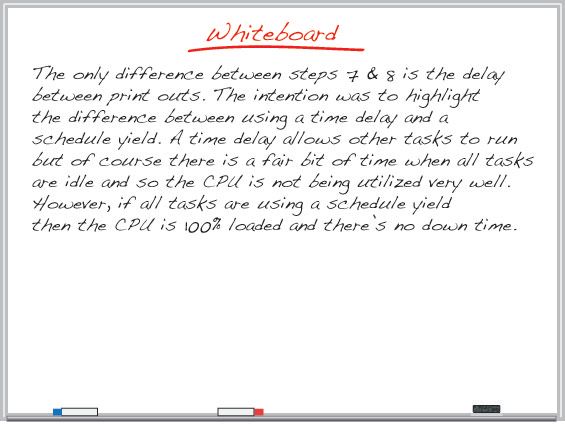 Whiteboard
The only difference between steps 7 & 8 is the delay
between print outs. The intention was to highlight
the difference between using a time delay and a
schedule yield. A time delay allows other tasks to run
but of course there is a fair bit of time when all tasks
are idle and so the CPU is not being utilized very well.
However, if all tasks are using a schedule yield
then the CPU is 100% loaded and there's no down time.